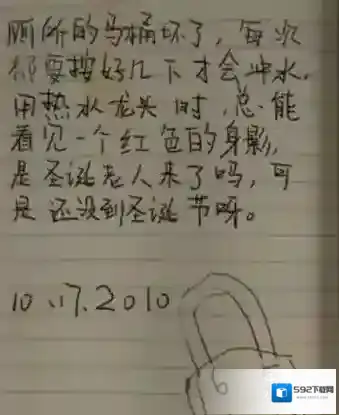 厕所的马桶坏了，每次
都要按好几下才会冲水。
用热水龙头时，总能
看见一个红色的身影，
是圣诞老人来了吗，可
是还没到圣诞节呀。
10.17.2010
592下载网